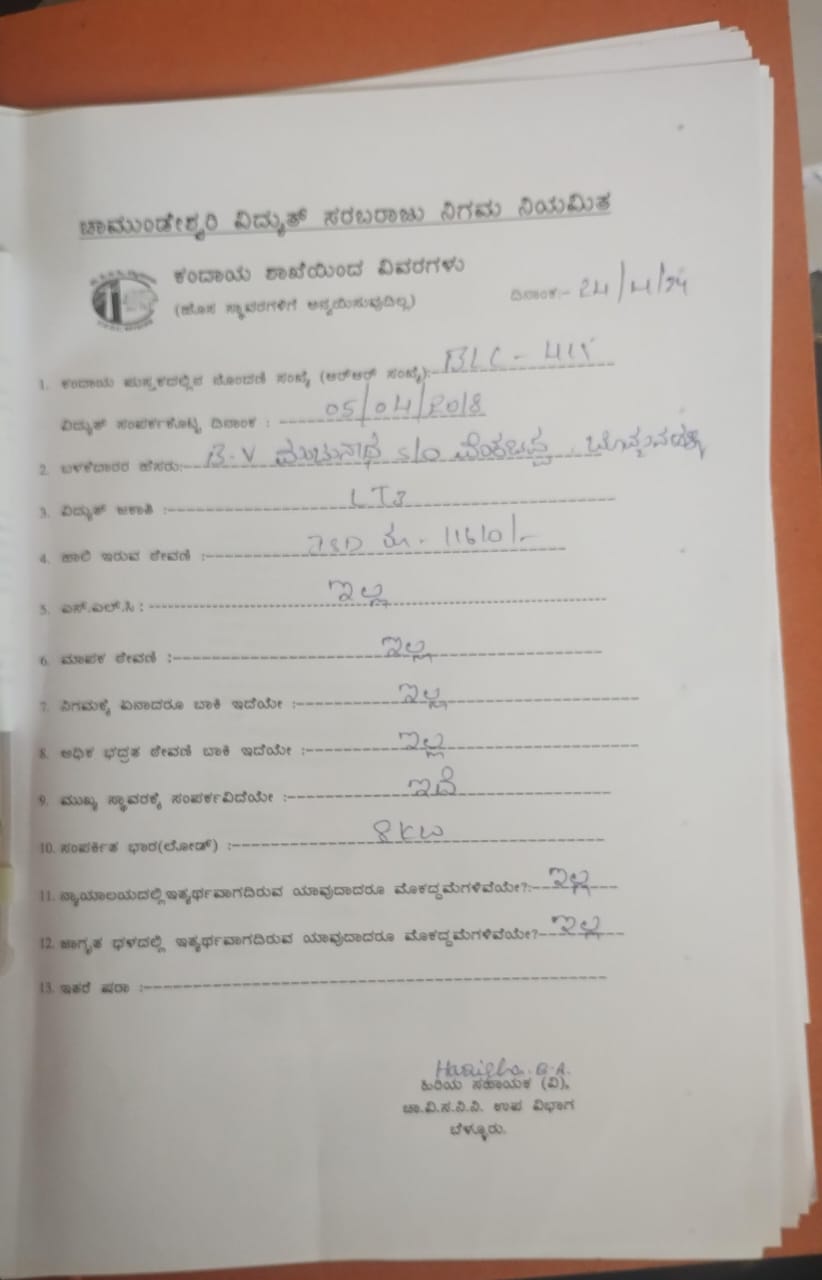 ಚಾಮುಂಡೇಶ್ವರಿ ವಿದ್ಯುತ್ ಸರಬರಾಜು ನಿಗಮ ನಿಯಮಿತ
ಕಂದಾಯ ಶಾಖೆಯಿಂದ ವಿವರಗಳು
(ಹೊಸ ಸ್ಥಾವರಗಳಿಗೆ ಅನ್ವಯಿಸುವುದಿಲ್ಲ) ದಿನಾಂಕ:- 24/4/24
1. ಕಂದಾಯ ಪುಸ್ತಕದಲ್ಲಿನ ನೊಂದಣಿ ಸಂಖ್ಯೆ (ಆರ್ಆರ್ ಸಂಖ್ಯೆ):- BLC -
ವಿದ್ಯುತ್ ಸಂಪರ್ಕಕೊಟ್ಟ ದಿನಾಂಕ : 05/04/2018
2. ಬಳಕೆದಾರರ ಹೆಸರು:- B.V S/O
3. ವಿದ್ಯುತ್ ಜಕಾತಿ :- LT3
4. ಹಾಲಿ ಇರುವ ಠೇವಣಿ :- ರೂ. 11610/-
5. ಎಸ್.ಎಲ್.ಸಿ : ಇಲ್ಲ
6. ಮಾಪಕ ಠೇವಣಿ :- ಇಲ್ಲ
7. ನಿಗಮಕ್ಕೆ ಏನಾದರೂ ಬಾಕಿ ಇದೆಯೇ :- ಇಲ್ಲ
8. ಅಧಿಕ ಭದ್ರತ ಠೇವಣಿ ಬಾಕಿ ಇದೆಯೇ :- ಇಲ್ಲ
9. ಮುಖ್ಯ ಸ್ಥಾವರಕ್ಕೆ ಸಂಪರ್ಕವಿದೆಯೇ :- ಇದೆ
10. ಸಂಪರ್ಕಿತ ಭಾರ(ಲೋಡ್) :- 8KW
11. ನ್ಯಾಯಾಲಯದಲ್ಲಿ ಇತ್ಯರ್ಥವಾಗದಿರುವ ಯಾವುದಾದರೂ ಮೊಕದ್ದಮೆಗಳಿವೆಯೇ?:- ಇಲ್ಲ
12. ಜಾಗೃತ ಧಳದಲ್ಲಿ ಇತ್ಯರ್ಥವಾಗದಿರುವ ಯಾವುದಾದರೂ ಮೊಕದ್ದಮೆಗಳಿವೆಯೇ?- ಇಲ್ಲ
13. ಇತರೆ ಷರಾ :-
ಹಿರಿಯ ಸಹಾಯಕ (ವಿ),
ಚಾ.ವಿ.ಸ.ನಿ.ನಿ. ಉಪ ವಿಭಾಗ
ಬೆಳ್ಳೂರು.